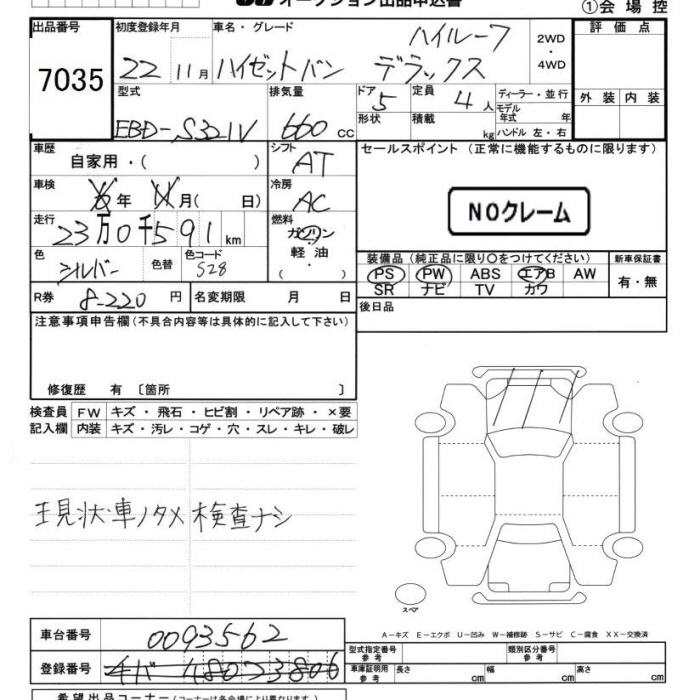 オークション出品申込書 ①会場控
出品番号 初度登録年月 車名・グレード ハイルーフ 2WD・4WD 評価点
7035 22 11月 ハイゼットバン デラックス
型式 排気量 ドア 5 定員 4人 ディーラー・並行 外装 内装
EBD-S321V 660cc 形状 積載 kg モデル年式 年 ハンドル 左・右
車歴 自家用・( ) シフト AT セールスポイント (正常に機能するものに限ります)
車検 年 月( 日) 冷房 AC
NOクレーム
走行 23万0千591km 燃料 ガソリン 軽油 ( ・ )
色 シルバー 色替 色コード S28
装備品 (純正品に限り○をつけてください) 新車保証書
PS PW ABS エアB AW 有・無
SR ナビ TV カワ
R券 8-220円 名変期限 月 日 後日品
注意事項申告欄 (不具合内容等は具体的に記入して下さい)
修復歴 有 〔箇所 〕
検査員 FW キズ・飛石・ヒビ割・リペア跡・×要
記入欄 内装 キズ・汚レ・コゲ・穴・スレ・キレ・破レ
現状車ノタメ検査ナシ
スペア
A-キズ E-エクボ U-凹み W-補修跡 S-サビ C-腐食 XX-交換済
車台番号 0093562
型式指定番号 参考 類別区分番号 参考
登録番号 480 23806
車庫証明用 参考 長さ cm 幅 cm 高さ cm
希望出品コーナー (コーナーは各会場により異なります。)